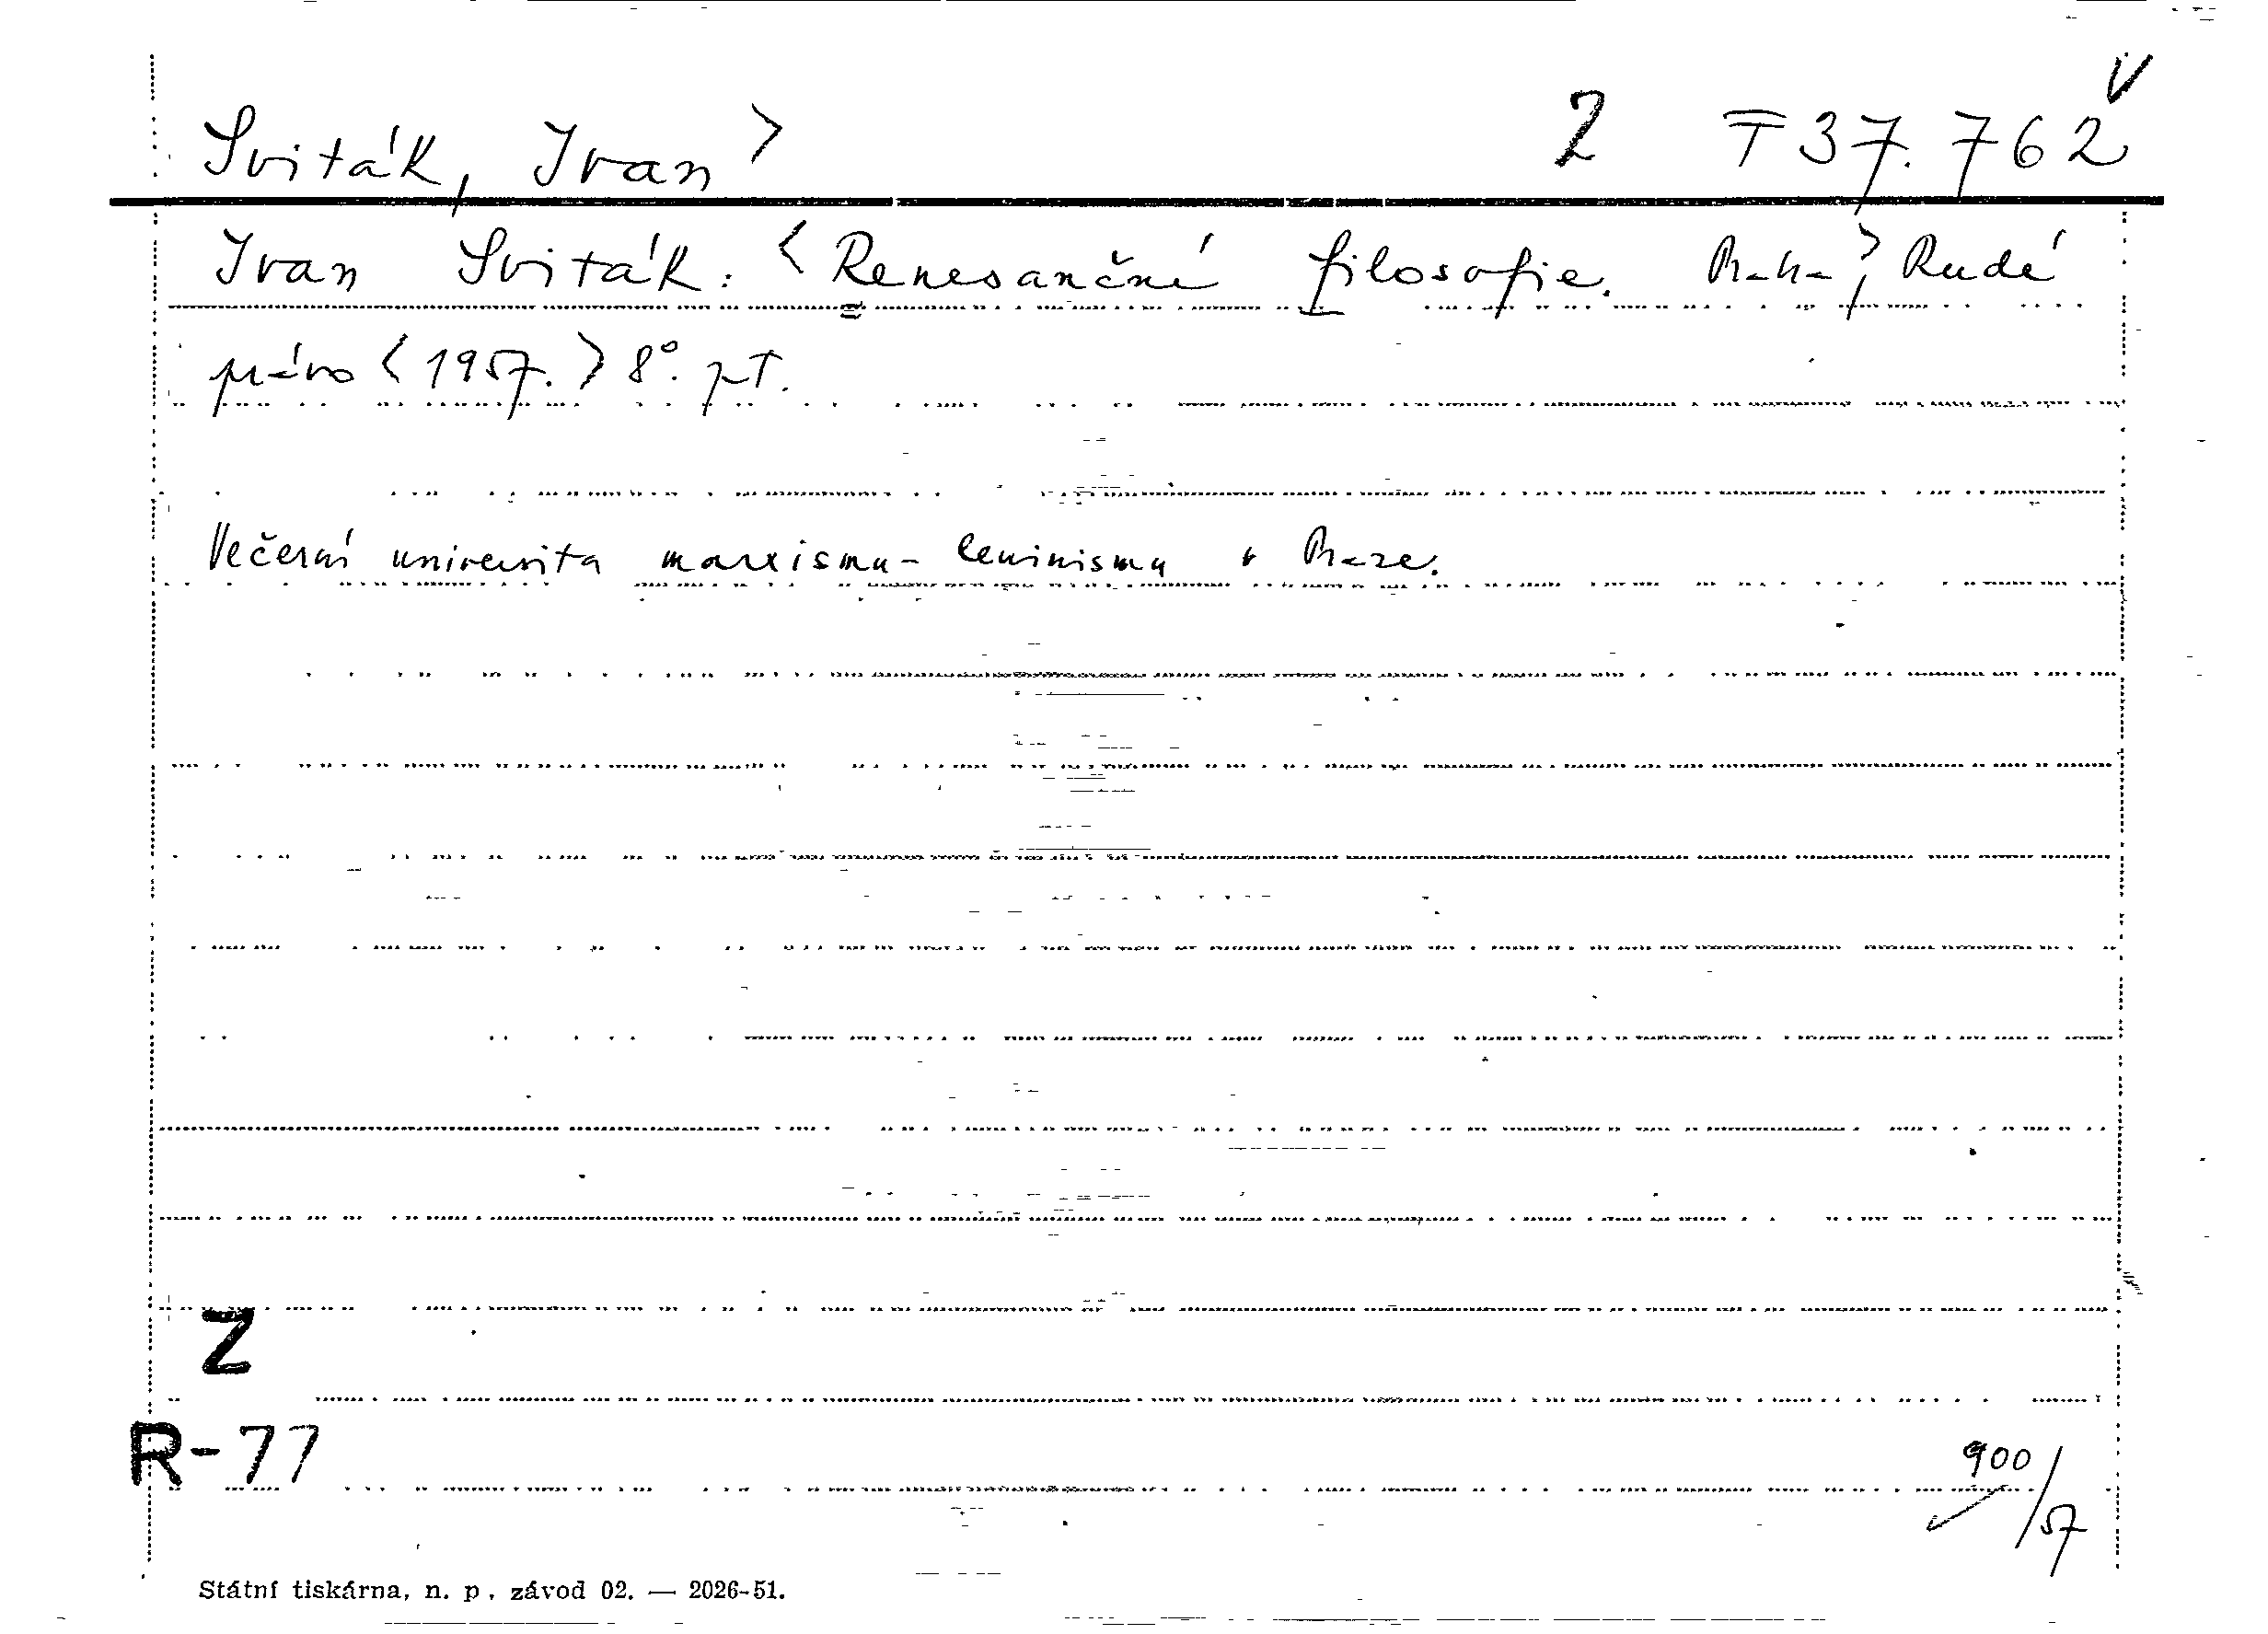 Sviták, Ivan > Z T 37.762 V
Ivan Sviták: <Renesanční filosofie. Praha>, Rudé
právo <1957.> 8°. pT.
Večerní universita marxismu-leninismu v Praze.
Z
R-77
900/57
Státní tiskárna, n. p., závod 02. — 2026-51.